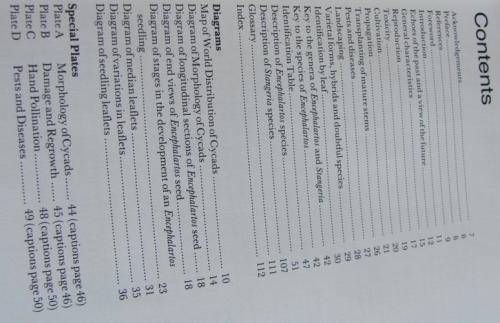 Contents
Acknowledgements ........ 7
Preface ........ 8
References ........ 8
Foreword ........ 9
Introduction ........ 11
Echoes of the past (and a view of the future ........ 12
General characteristics ........ 15
Reproduction ........ 17
Toxicity ........ 19
Cultivation ........ 20
Propagation ........ 21
Transplanting of mature stems ........ 26
Pests and diseases ........ 27
Landscaping ........ 28
Varietal forms, hybrids and doubtful species ........ 29
Identification by leaf ........ 30
Key to the genera of Encephalartos and Stangeria ........ 42
Key to the species of Encephalartos ........ 42
Identification Table ........ 47
Description of Encephalartos species ........ 51
Description of Stangeria species ........ 107
Glossary ........ 111
Index ........ 112
Diagrams
Map of World Distribution of Cycads ........ 10
Diagram of Morphology of Cycads ........ 14
Diagram of longitudinal sections of Encephalartos seed ........ 18
Diagram of end views of Encephalartos seed ........ 18
Diagram of stages in the development of an Encephalartos
seedling ........ 23
Diagram of median leaflets ........ 31
Diagram of variations in leaflets ........ 35
Diagram of seedling leaflets ........ 36
Special Plates
Plate A Morphology of Cycads ........ 44 (captions page 46)
Plate B Damage and Regrowth ........ 45 (captions page 46)
Plate C Hand Pollination ........ 48 (captions page 50)
Plate D Pests and Diseases ........ 49 (captions page 50)